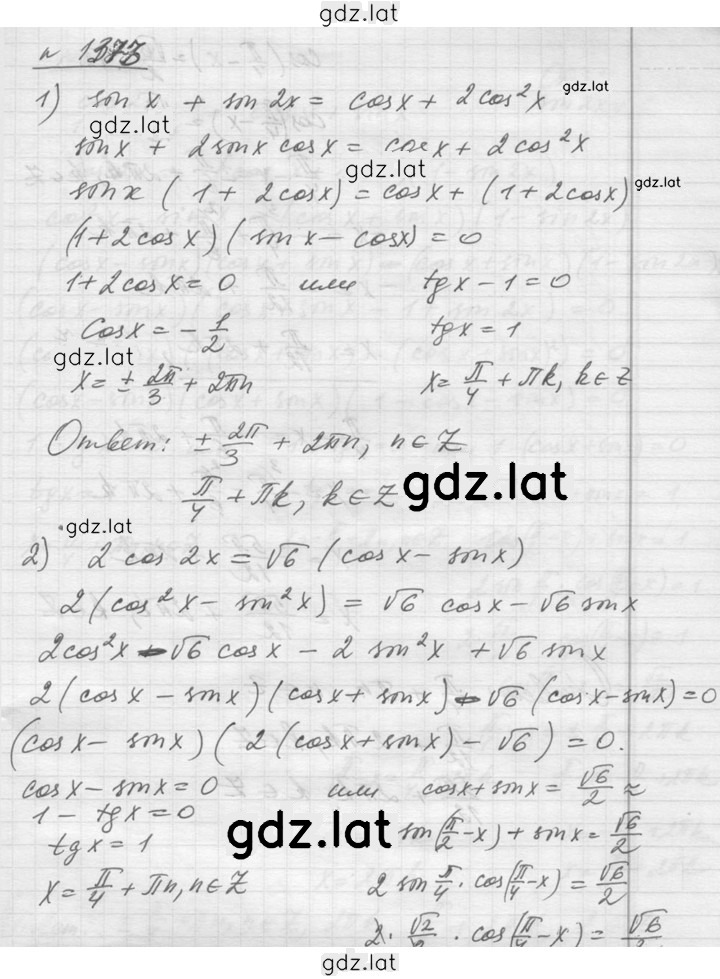 gdz.lat
n 1373
1) sin x + sin 2x = cos x + 2cos²x
gdz.lat
gdz.lat
sin x + 2 sin x cos x = cos x + 2 cos²x
gdz.lat
sin x ( 1 + 2cos x) = cos x + (1 + 2cos x)
gdz.lat
(1 + 2 cos x) ( sin x – cos x) = 0
1 + 2 cos x = 0 или tg x – 1 = 0
Cos x = – 1/2 tg x = 1
gdz.lat
x = ± 2π/3 + 2πn x = π/4 + πk, k ∈ Z
Ответ: ± 2π/3 + 2πn, n ∈ Z
π/4 + πk, k ∈ Z
gdz.lat
gdz.lat
2) 2 cos 2x = √6 (cos x – sin x)
2 (cos²x – sin²x) = √6 cos x – √6 sin x
2cos²x – √6 cos x – 2 sin²x + √6 sin x
2 (cos x – sin x) (cos x + sin x) – √6 (cos x – sin x) = 0
(cos x – sin x) ( 2 (cos x + sin x) – √6 ) = 0.
cos x – sin x = 0 или cos x + sin x = √6/2
1 – tg x = 0 sin(π/2 – x) + sin x = √6/2
gdz.lat
tg x = 1
x = π/4 + πn, n ∈ Z 2 sin π/4 · cos(π/4 – x) = √6/2
gdz.lat
2 · √2/2 · cos(π/4 – x) = √6/2
gdz.lat